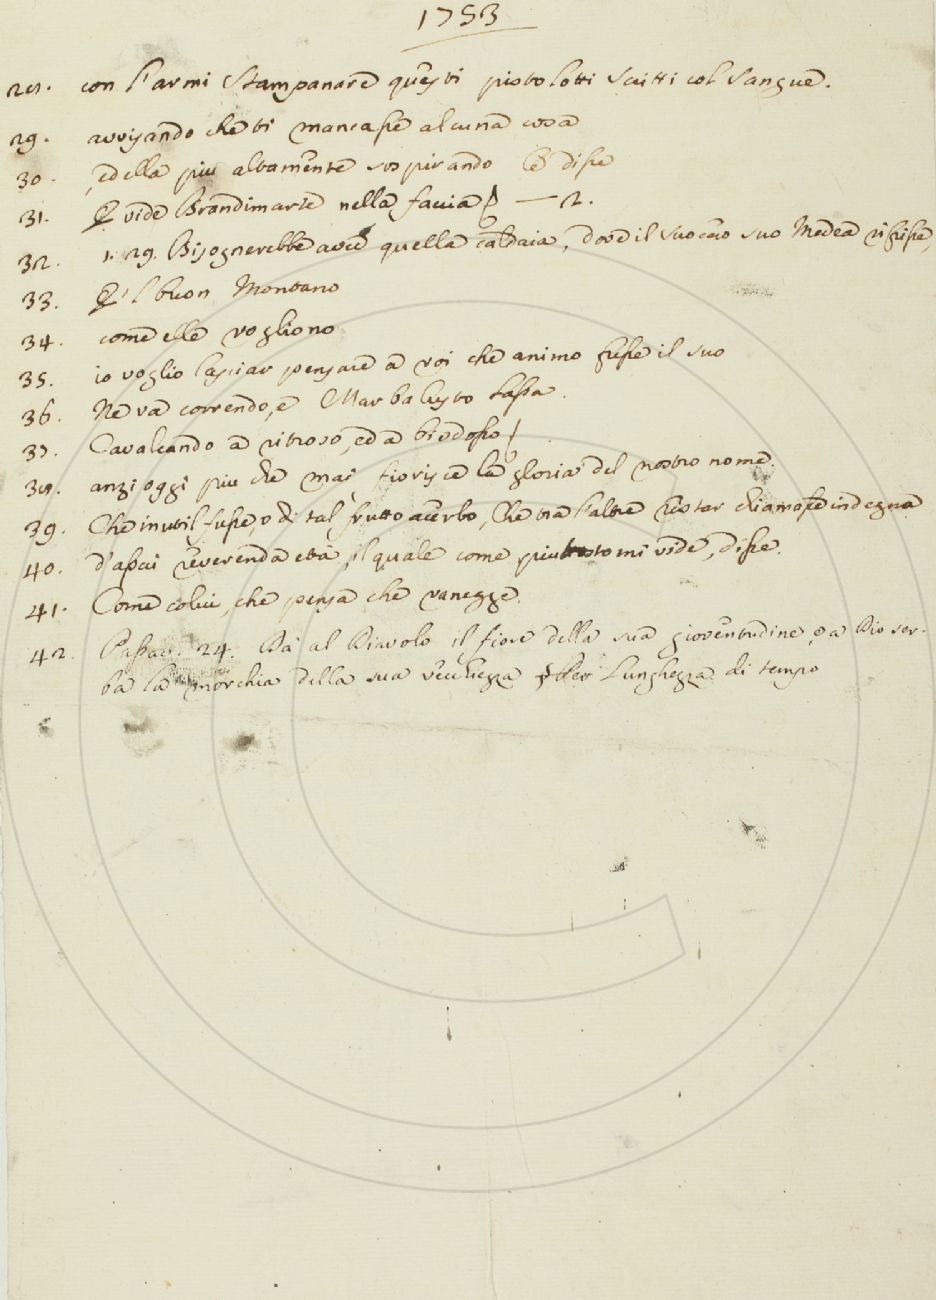 1753
28. con l'armi stampanare questi pistolotti scritti col sangue.
29. avvisando che ti mancasse alcuna cosa
30. ed ella più altamente sospirando le disse
31. E vide Brandimarte nella faccia — 2.
32. 1. 29. Bisognerebbe avere quella caldaia, dove il suocero suo Medea rifrisse,
33. E 'l buon Montano
34. come elle vogliono
35. io voglio lasciar pensare a voi che animo fusse il suo
36. Ne va correndo, e Marbalusto lassa.
37. Cavalcando a ritroso, ed a bisdosso
38. anzi oggi più che mai fiorisce la gloria del nostro nome.
39. Che inutil fusse, o di tal frutto acerbo, che tra l'altre restar indegna
40. d'assai reverenda età, il quale come mi vide, disse.
41. Come colui, che pensa che vanegge.
42. 24. Dà al Diavolo il fiore della sua gioventudine, e a Dio ser-
ba la morchia della sua vecchiezza per lunghezza di tempo